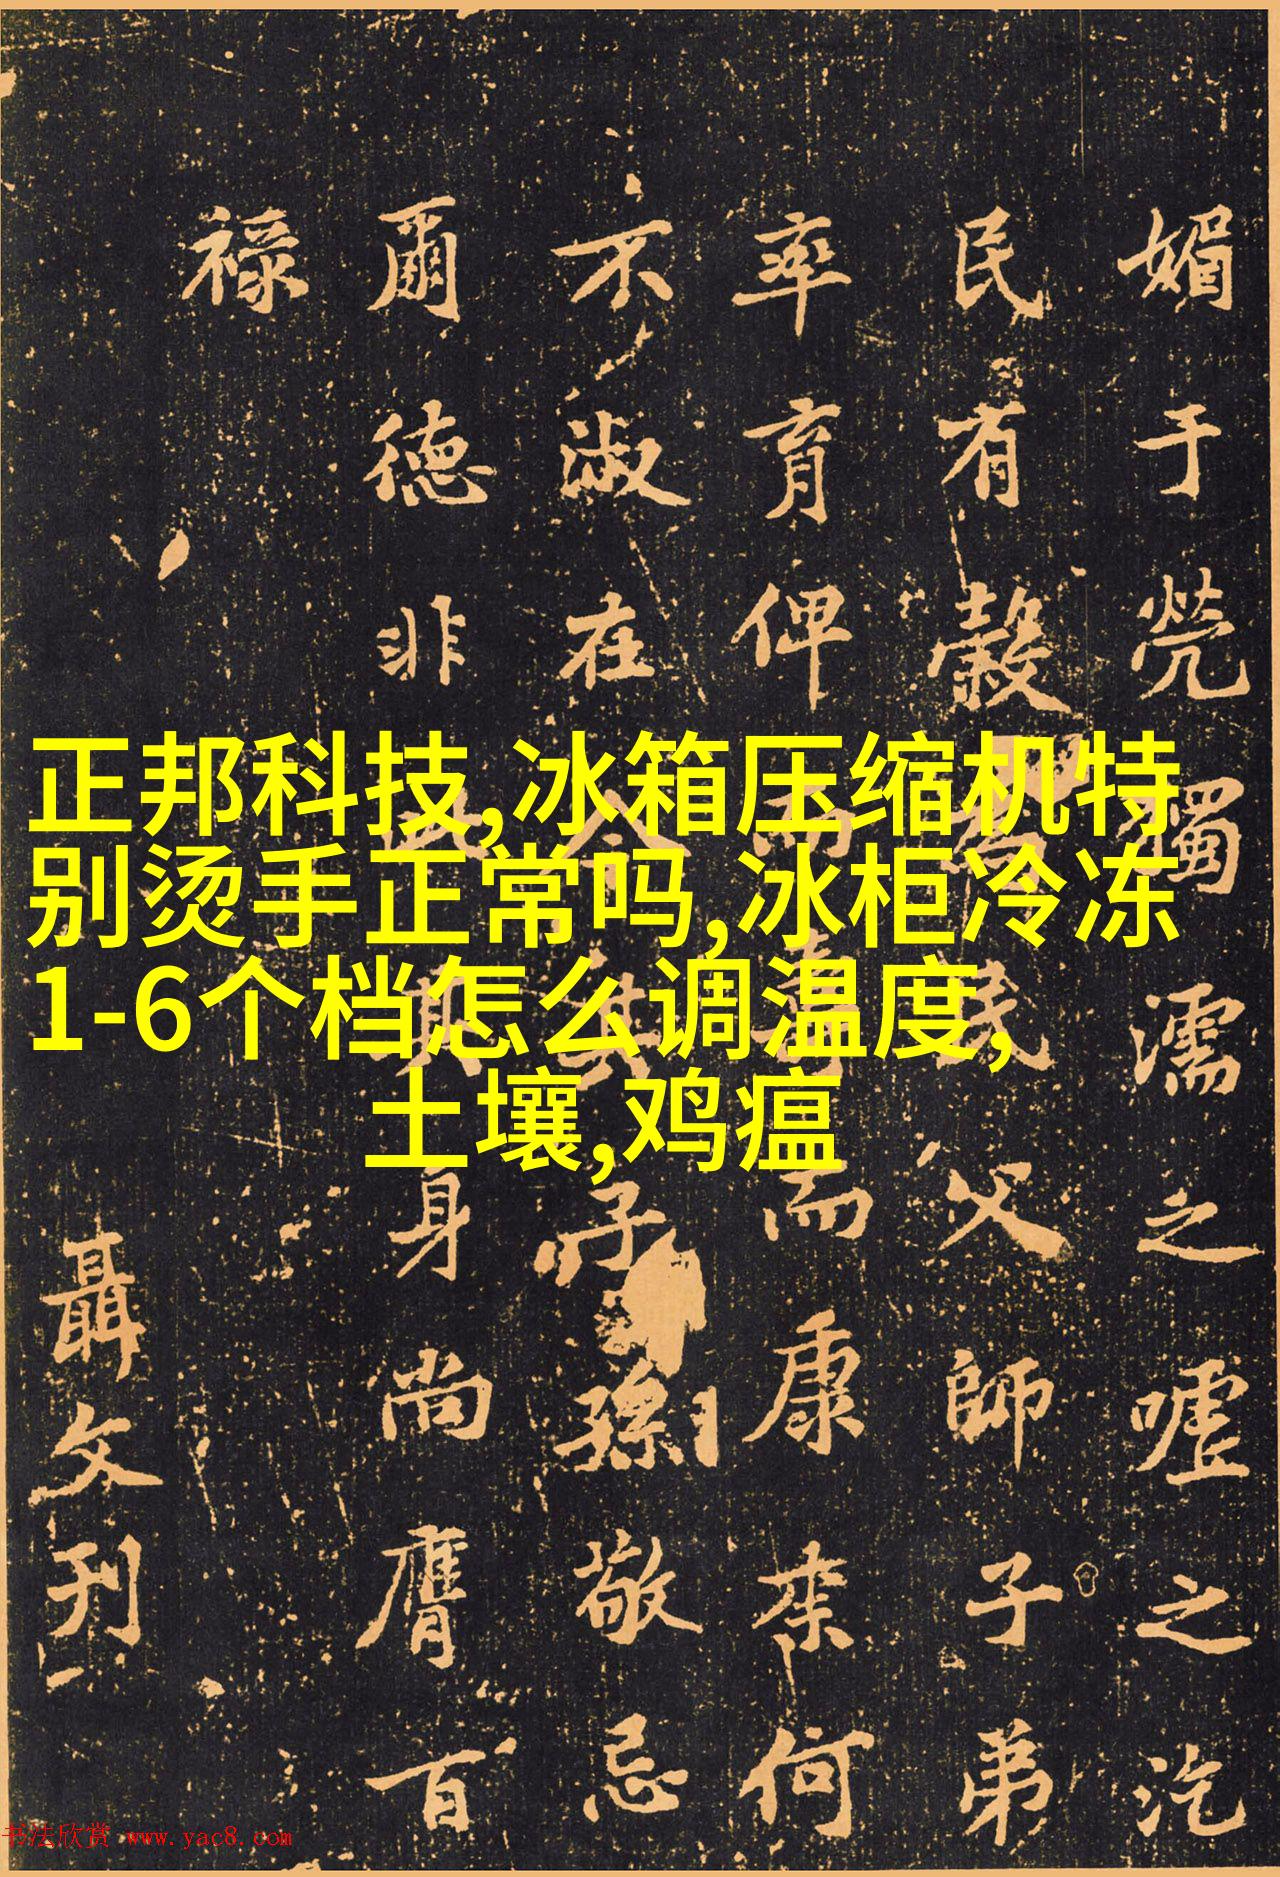 正邦科技,冰箱压缩机特
别烫手正常吗,冰柜冷冻
1-6个档怎么调温度,
土壤,鸡瘟
媚于煢獨濡之嘘之汔
民有穀 父師子弟
率育俾而壽而康来何
不淑在 子孫敬忌
爾德非 其身尚膺百
禄
聶文刊
书法欣赏 www.yac8.com